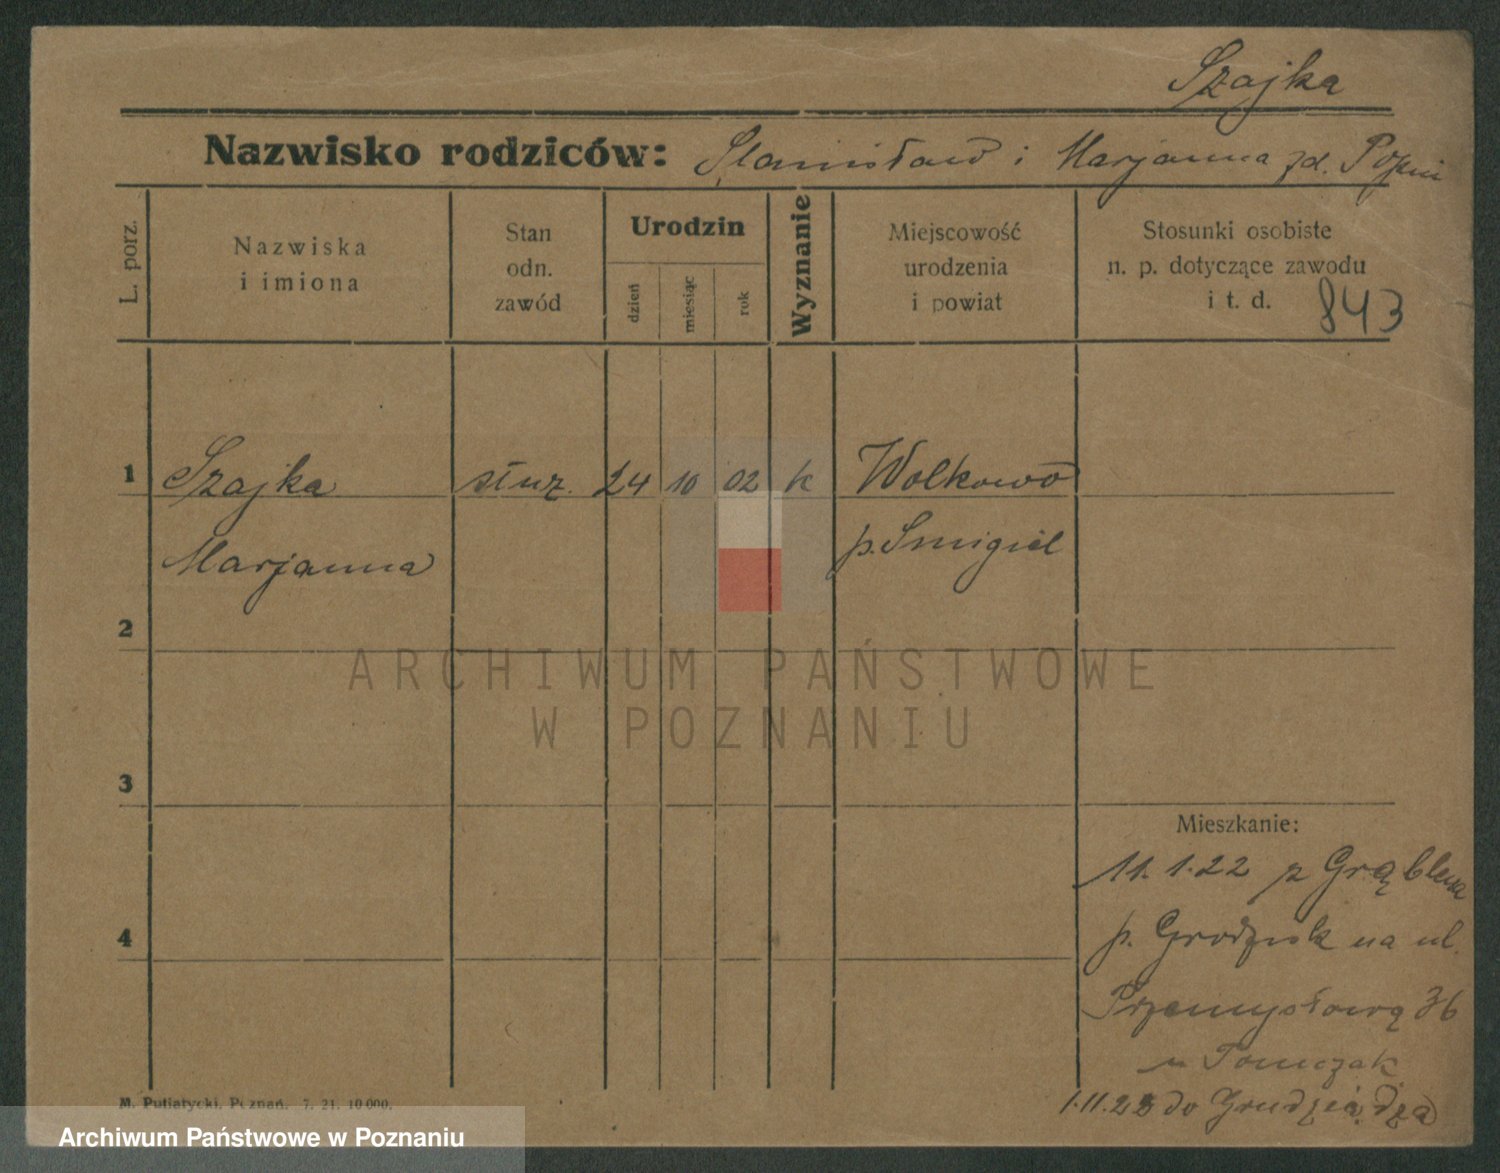 Szajka
Nazwisko rodziców: Stanisław i Marjanna zd.
L. porz.
Nazwiska
i imiona
Stan
odn.
zawód
Urodzin
dzień
miesiąc
rok
Wyznanie
Miejscowość
urodzenia
i powiat
Stosunki osobiste
n. p. dotyczące zawodu
i t. d.
843
1 Szajka służ. 24 10 02 k Wolkowo
Marjanna p. Smigiel
2
ARCHIWUM PAŃSTWOWE
W POZNANIU
3
Mieszkanie:
11.1.22 z Grąblewa
4
p. Grodzisk na ul.
Przemysłową 36
u Tomczak
1.11.23 do Grudziądza
M. Putiatycki, Poznań. 7. 21. 10 000.
Archiwum Państwowe w Poznaniu